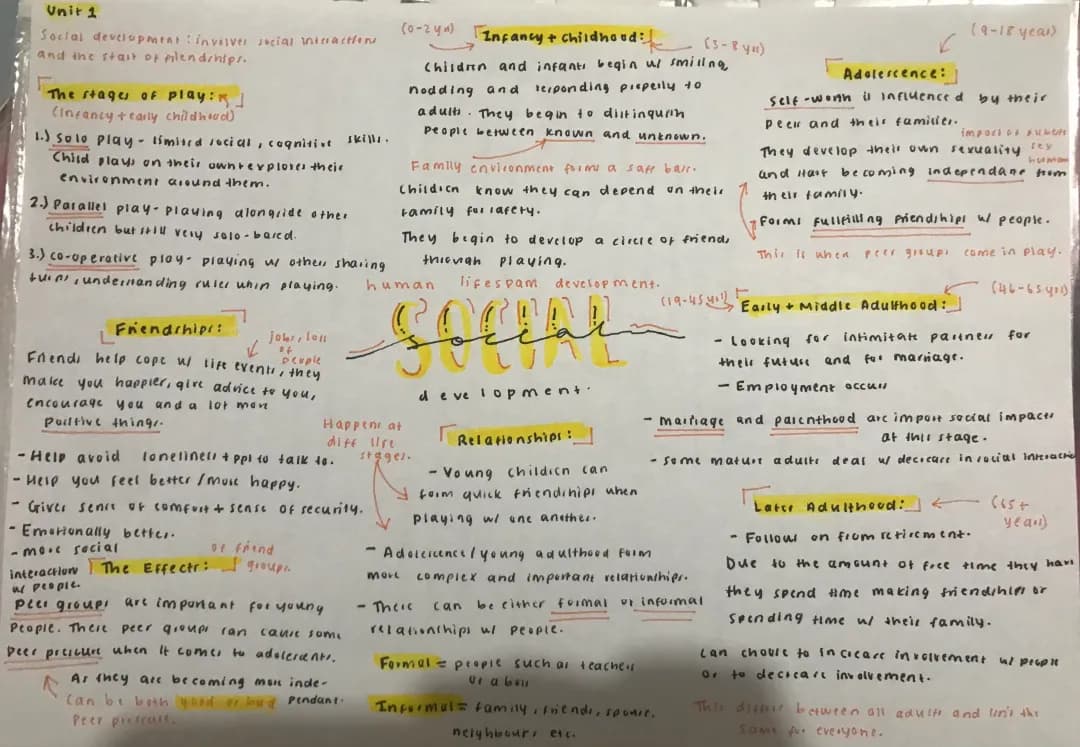 Unit 1
Social development: involves social interactions
and the start of friendships.
The stages of play:
(Infancy + early childhood)
1.) Solo play - limited social, cognitive skills.
Child plays on their own + explores their
environment around them.
2.) Parallel play - playing alongside other
children but still very solo-based.
3.) co-operative play - playing w/ others sharing
turns, understanding rules when playing.
(0-2 yrs)
Infancy + childhood:
(3-8 yrs)
Children and infants begin w/ smiling,
nodding and responding properly to
adults. They begin to distinguish
people between known and unknown.
Family environment forms a safe base.
Children know they can depend on their
family for safety.
They begin to develop a circle of friends
through playing.
(9-18 years)
Adolescence:
Self-worth is influenced by their
peers and their families.
They develop their own sexuality
sex
and start becoming independant from
their family.
Forms fullfilling friendships w/ people.
This is when peer groups come in play.
human lifespam development.
SOCIAL
social
development.
Friendships:
jobs, loss
of
people
Friends help cope w/ life events, they
make you happier, give advice to you,
encourage you and a lot more
positive things.
- Help avoid loneliness + ppl to talk to.
- Help you feel better / more happy.
- Gives sense of comfort + sense of security.
- Emotionally better.
- more social
interaction
w/ people.
The Effects:
of friend
groups.
Peer groups are important for young
people. These peer groups can cause some
peer pressure when it comes to adolescents.
As they are becoming more inde-
pendant.
Can be both good or bad
peer pressure.
Happens at
diff life
stages.
Relationships:
- Young children can
form quick friendships when
playing w/ one another.
- Adolescence / young adulthood form
more complex and important relationships.
- There can be either formal or informal
relationships w/ people.
Formal = people such as teachers
or a boss
Informal = family, friends, spouse,
neighbours etc.
(19-45 yrs)
Early + Middle Adulthood:
(46-65 yrs)
- Looking for intimitate partners for
their future and for marriage.
- Employment occurs
- marriage and parenthood are import social impacts
at this stage.
- some mature adults deal w/ decrease in social interaction
Later Adulthood:
(65+
years)
- Follow on from retirement.
Due to the amount of free time they have
they spend time making friendships or
spending time w/ their family.
Can choose to increase involvement w/ people
or to decrease involvement.
This differs between all adults and isn't the
same for everyone.